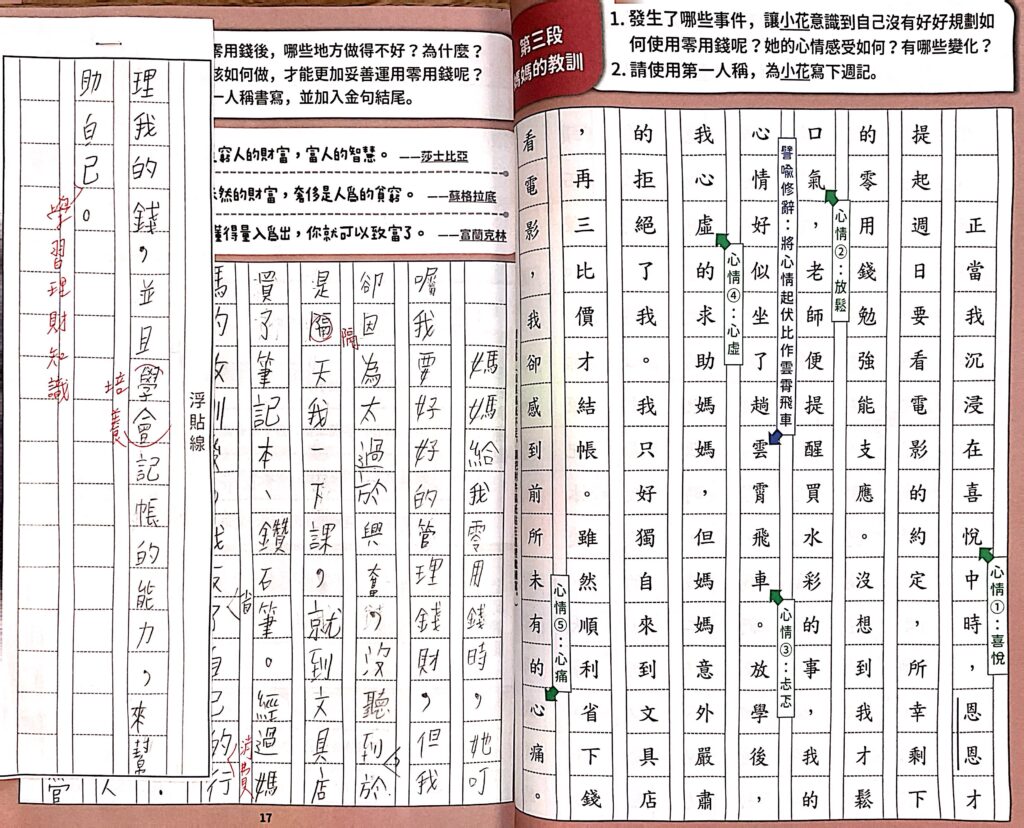 第三段
媽媽的教訓
1. 發生了哪些事件，讓小花意識到自己沒有好好規劃如
何使用零用錢呢？她的心情感受如何？有哪些變化？
2. 請使用第一人稱，為小花寫下週記。
正當我沉浸在喜悅中時，恩恩才
提起週日要看電影的約定，所幸剩下
的零用錢勉強能支應。沒想到我才鬆
口氣，老師便提醒買水彩的事，我的
心情好似坐了趟雲霄飛車。放學後，
我心虛的求助媽媽，但媽媽意外嚴肅
的拒絕了我。我只好獨自來到文具店
，再三比價才結帳。雖然順利省下錢
看電影，我卻感到前所未有的心痛。
心情①：喜悅
心情②：放鬆
心情③：忐忑
譬喻修辭：將心情起伏比作雲霄飛車
心情④：心虛
心情⑤：心痛
零用錢後，哪些地方做得不好？為什麼？
該如何做，才能更加妥善運用零用錢呢？
一人稱書寫，並加入金句結尾。
窮人的財富，富人的智慧。 ——莎士比亞
然的財富，奢侈是人為的貧窮。 ——蘇格拉底
懂得量入為出，你就可以致富了。 ——富蘭克林
媽媽給我零用錢時，她叮
囑我要好好的管理錢財，但我
卻因為太過於興奮，沒聽到於
是隔天我一下課，就到文具店
隔
買了筆記本、鑽石筆。經過媽
媽的教訓後，我反了自己的行
省
消費
管人。
浮貼線
理我的錢，並且學會記帳的能力，來幫
培養
助自己。
學習理財知識
17